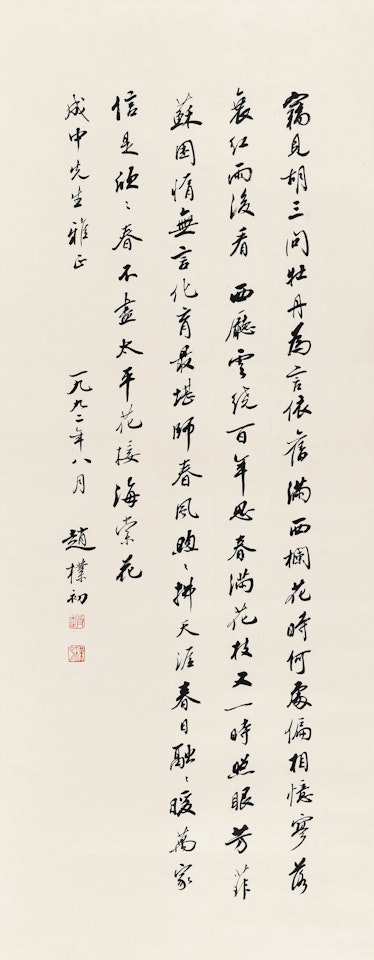 竊見胡三問牡丹為言依舊滿西欄花時何處偏相憶寥落
衰紅雨後看 西廳雲繞百年思春滿花枝又一時照眼芳菲
蘇困惰無言化育最堪師春風昫〻拂天涯春日融〻暖萬家
信是欣〻春不盡太平花接海棠花
成中先生雅正
一九九二年八月 趙樸初